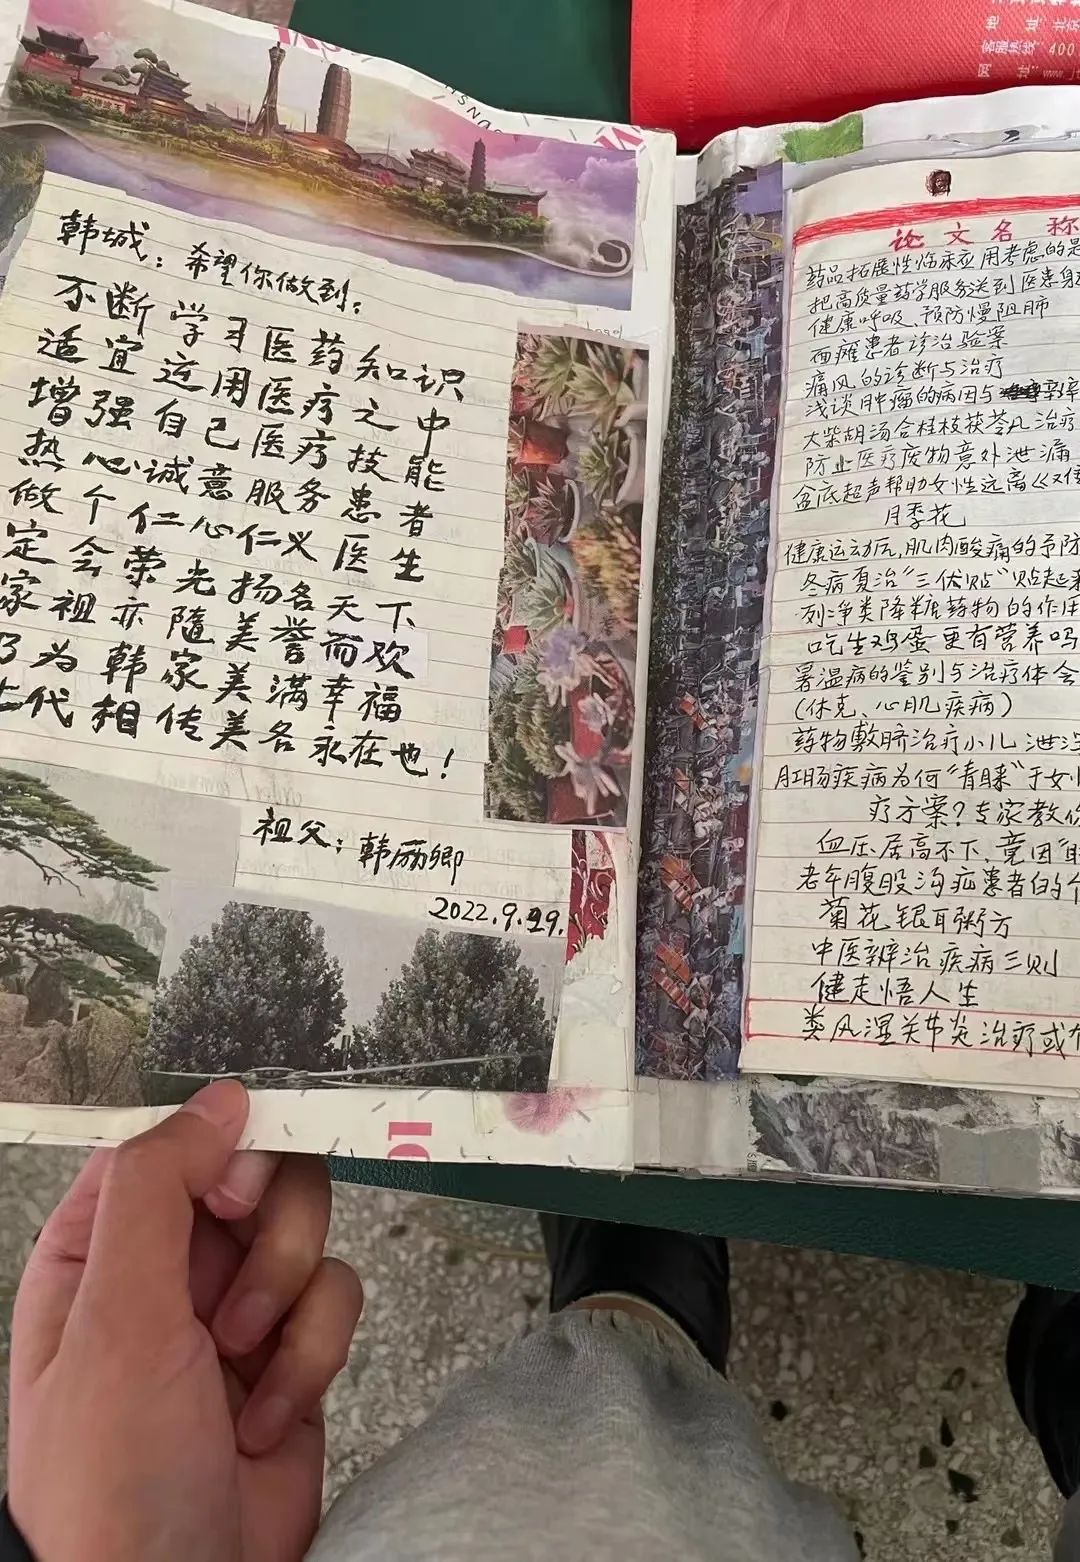 韩城：希望你做到：
不断学习医药知识
适宜运用医疗之中
增强自己医疗技能
热心诚意服务患者
做个仁心仁义医生
定会荣光扬名天下
家祖亦随美誉而欢
乃为韩家美满幸福
代相传美名永在也！
祖父：韩励卿
2022.9.29.
地 址:北京
客服热线:400
网 址:www.j
论文名称
药品拓展性临床应用考虑的是
把高质量药学服务送到医患身
健康呼吸、预防慢阻肺
面瘫患者诊治验案
痛风的诊断与治疗
浅谈肿瘤的病因与
大柴胡汤合桂枝茯苓丸治疗
防止医疗废物意外泄漏
盆底超声帮助女性远离
月季花
健康运动后,肌肉酸痛的予防
冬病夏治“三伏贴”贴起来
列净类降糖药物的作用
吃生鸡蛋更有营养吗
暑温病的鉴别与治疗体会
(休克、心肌疾病)
药物敷脐治疗小儿泄泻
肛肠疾病为何“青睐”于女
疗方案?专家教你
血压居高不下、竟因
老年腹股沟疝患者的
菊花银耳粥方
中医辨治疾病三则
健走悟人生
类风湿关节炎治疗或